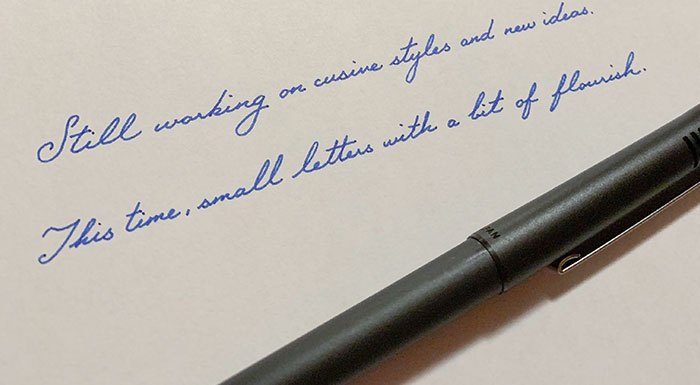 Still working on cusive styles and new ideas.
This time, small letters with a bit of flourish.